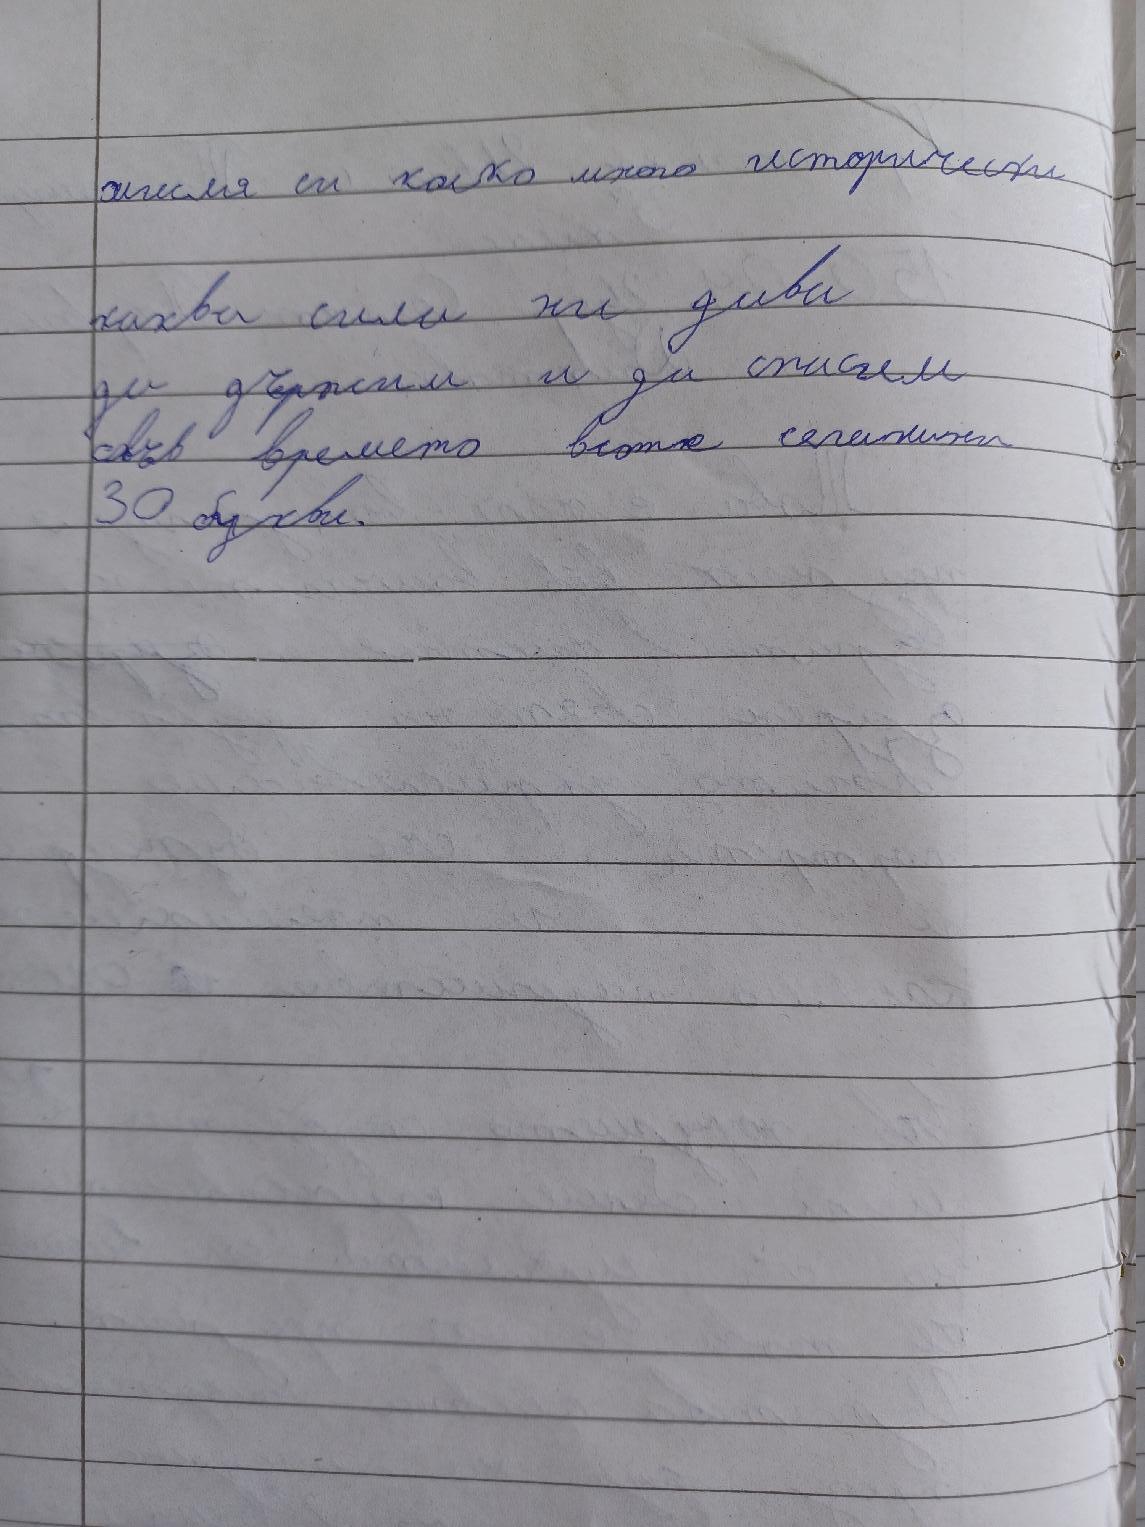 мисля си колко много исторически
каква сила ни дава
да държим и да спасим
във времето всяка
30 букви.